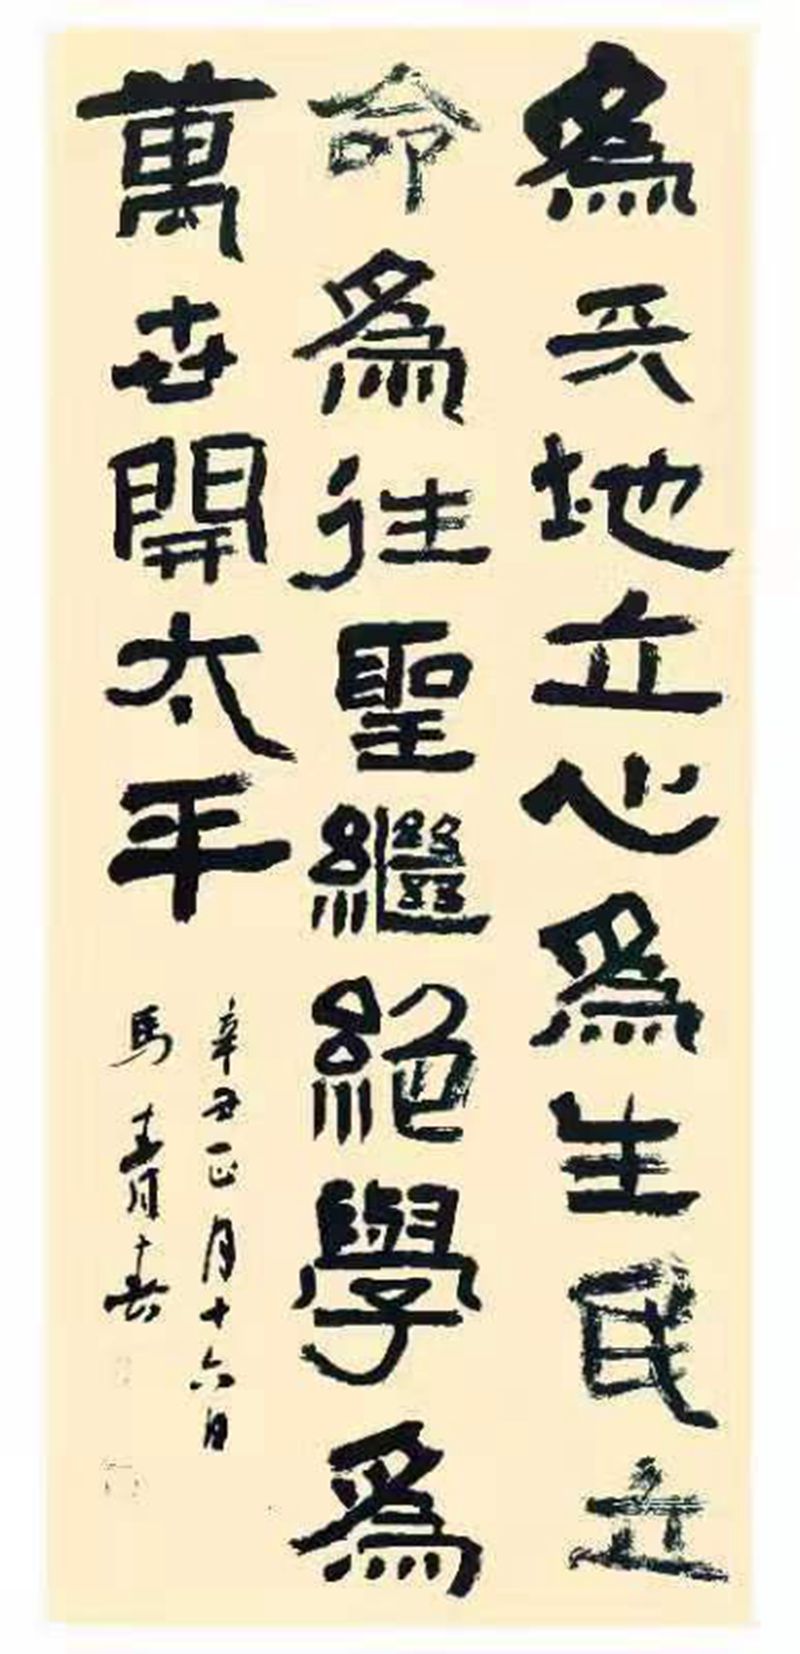 為天地立心為生民立
命為往聖繼絕學為
萬世開太平
辛丑正月十六日
馬